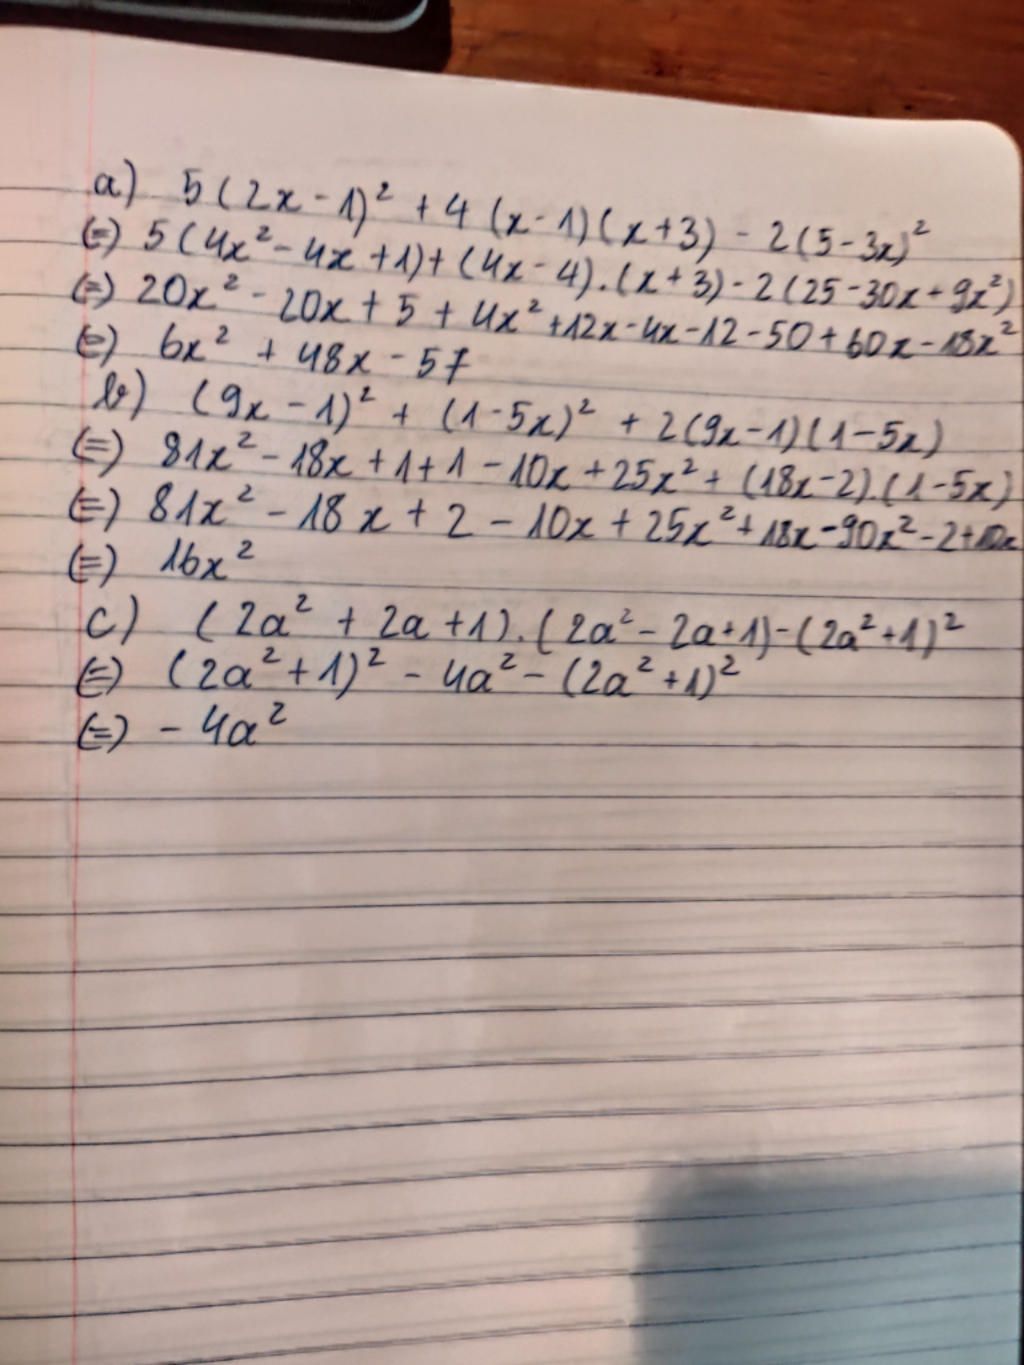 a) 5(2x-1)² + 4(x-1)(x+3) - 2(5-3x)²
(=) 5(4x² - 4x + 1) + (4x - 4).(x+3) - 2(25-30x+9x²)
(=) 20x² - 20x + 5 + 4x² + 12x - 4x - 12 - 50 + 60x - 18x²
(=) 6x² + 48x - 57
b) (9x - 1)² + (1-5x)² + 2(9x-1)(1-5x)
(=) 81x² - 18x + 1 + 1 - 10x + 25x² + (18x-2).(1-5x)
(=) 81x² - 18x + 2 - 10x + 25x² + 18x - 90x² - 2 + 10x
(=) 16x²
c) (2a² + 2a + 1).(2a² - 2a + 1) - (2a² + 1)²
(=) (2a² + 1)² - 4a² - (2a² + 1)²
(=) - 4a²